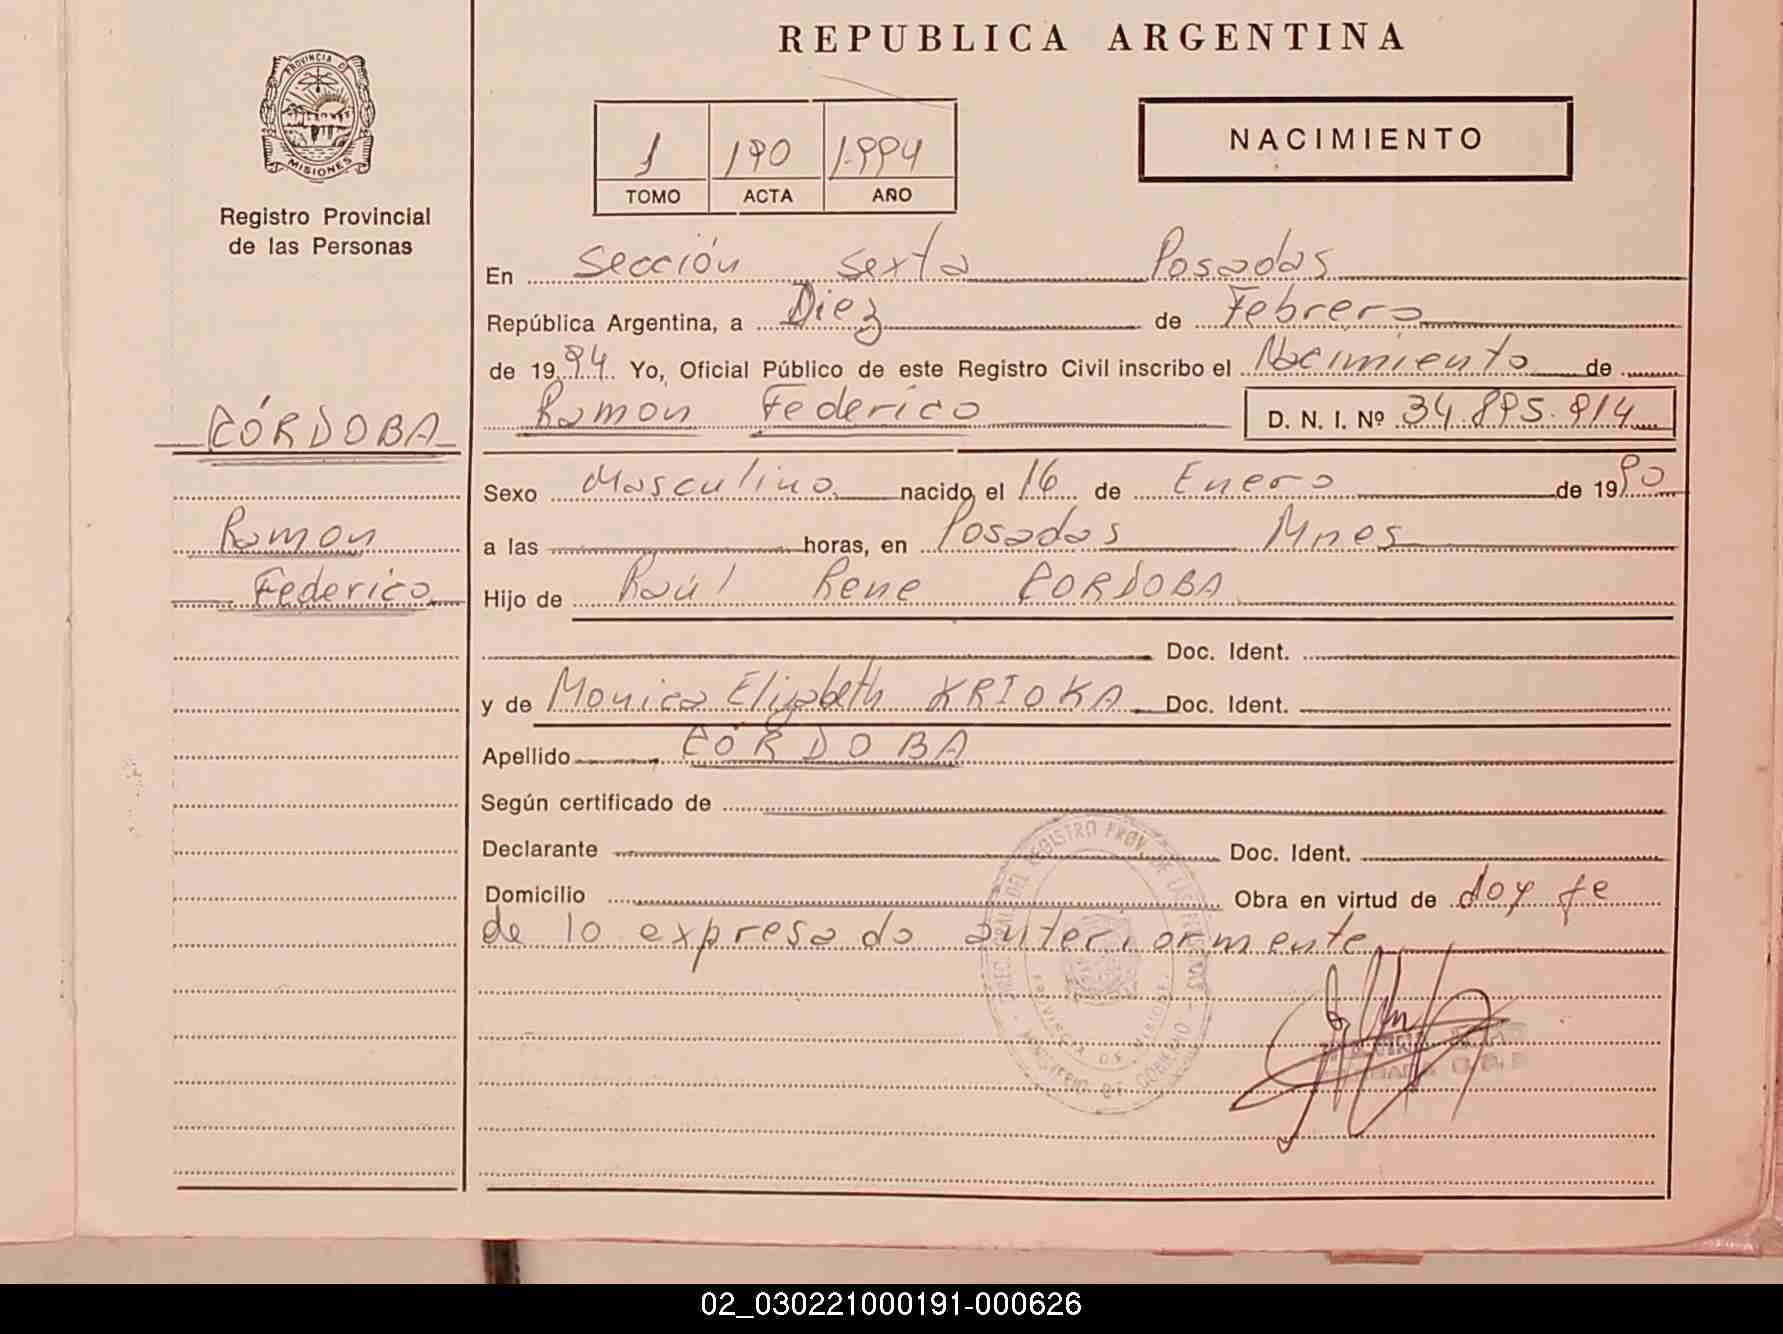 REPUBLICA ARGENTINA
PROVINCIA DE
MISIONES
Registro Provincial
de las Personas
1 190 1.994
TOMO ACTA AÑO
NACIMIENTO
En Sección Sexta Posadas
República Argentina, a Diez de Febrero
de 1994 Yo, Oficial Público de este Registro Civil inscribo el Nacimiento de
Ramon Federico D. N. I. Nº 34.895.914
CÓRDOBA
Ramon
Federico
Sexo Masculino nacido el 16 de Enero de 1990
a las horas, en Posadas Mnes
Hijo de Raúl Rene CORDOBA
Doc. Ident.
y de Monica Elizabeth KRIOKA Doc. Ident.
Apellido CÓRDOBA
Según certificado de
Declarante Doc. Ident.
Domicilio Obra en virtud de doy fe
de lo expresado anteriormente
DEL REGISTRO PROV. DE LAS PERSONAS
MINISTERIO DE GOBIERNO
PROVINCIA DE MISIONES
02_030221000191-000626